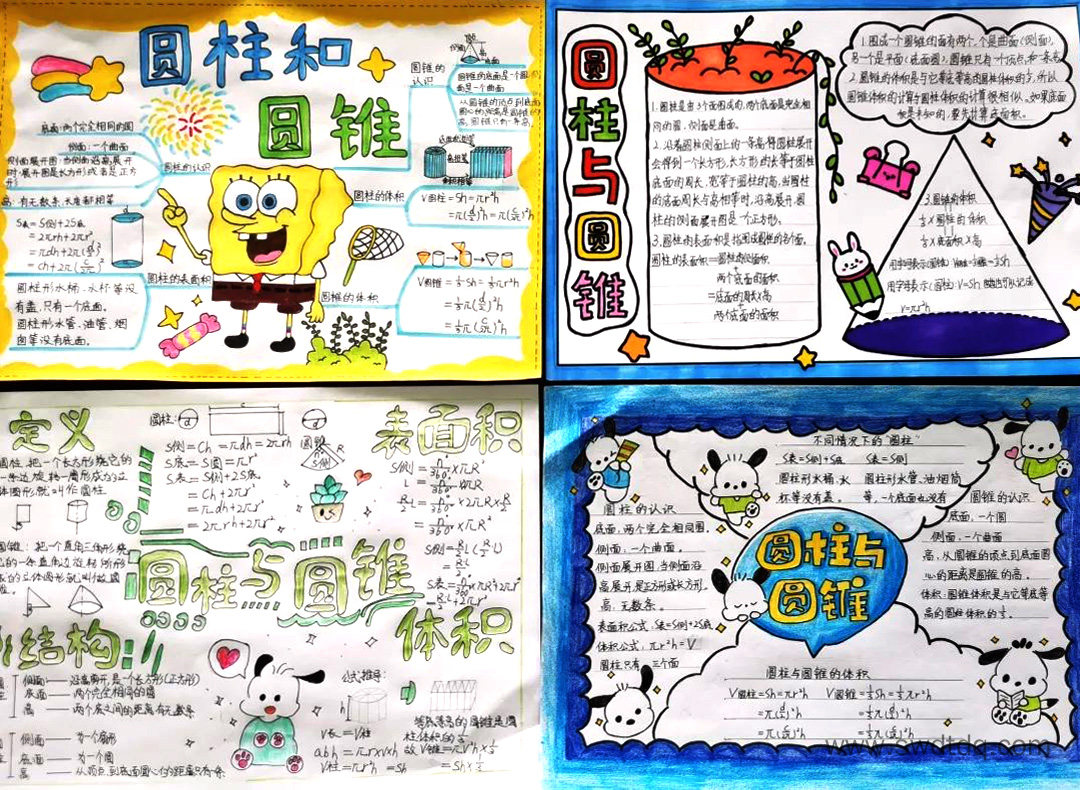 圆柱和
圆锥
圆锥的
认识
侧面
底面
圆锥的底面是个圆
面是一个曲面
从圆锥的顶点到底面
圆心的距离是圆锥的
高，圆锥只有一条高。
底面：两个完全相同的圆
侧面：一个曲面
侧面展开图：当侧面沿高展开
时，展开图是长方形或者是正方
形
高：有无数条，长度都相等
圆柱的认识
S表=S侧+2S底
=2πrh+2πr²
=πdh+2π(d/2)²
=ch+2π(C/2π)²
圆柱的表面积
圆柱形水桶、水杯等没
有盖，只有一个底面。
圆柱形水管、油管、烟
囱等没有底面。
圆柱的体积
V圆柱=Sh=πr²h
=π(d/2)²h=π(C/2π)²h
圆锥的体积
V圆锥=⅓Sh=⅓πr²h
=⅓π(d/2)²h
=⅓π(C/2π)²h
圆
柱
与
圆
锥
1.圆柱是由3个面围成的，两个底面是完全相
同的圆，侧面是曲面。
2.沿着圆柱侧面上的一条高，将圆柱展开
会得到一个长方形，长方形的长等于圆柱
底面的周长，宽等于圆柱的高，当圆柱
的底面周长与高相等时，沿高展开，圆
柱的侧面展开图是个正方形。
3.圆柱的表面积是指围成圆柱的各个面。
圆柱的表面积=圆柱的侧面积
+
两个底面的面积
=底面的周长×高
+
两个底面的面积
1.围成一个圆锥的面有两个，一个是曲面(侧面)，
另一个是平面(底面圆)，圆锥只有一个顶点，和一条高
2.圆锥的体积是与它等底等高的圆柱体积的⅓，所以
圆锥体积的计算于圆柱体积的计算很相似，如果底面
积是未知的，要先计算底面积。
3.圆锥的体积
⅓×圆柱的体积
⅓×底面积×高
V=πr²h
定义
圆柱：把一个长方形绕它的
一条边旋转一周形成的立
体图形就叫作圆柱
圆锥：把一个直角三角形绕
它的一条直角边旋转所形
成的立体图形就叫做圆
锥。
圆柱：
S侧=Ch=πdh=2πrh
S底=S圆=πr²
S表=S侧+2S底
=Ch+2πr²
=πdh+2πr²
=2πrh+2πr²
圆锥
S侧
R
表面积
S侧=n/360×πR²
圆柱与圆锥
结构
侧面——沿高展开，是一个长方形(正方形)
底面——两个完全相同的圆
高——两个底之间的距离有无数条
侧面——为一个扇形
底面——为一个圆
高——从顶点到底面圆心的距离只有一条
体积
公式推导：
h
V长=V柱
abh=πr×r×h
V柱=πr²h=Sh
等底等高的圆锥是圆
柱体积的⅓
故V锥=πr²h×⅓
=Sh×⅓
不同情况下的“圆柱”
S表=S侧+S底
S表=S侧
圆柱形水桶、水
杯等没有盖。
圆柱形水管、油烟筒
等，一个底面也没有
圆柱的认识
底面，两个完全相同圆。
侧面：一个曲面。
侧面展开图，当侧面沿
高展开是正方形或长方形。
高：无数条。
表面积公式：S表=S侧+2S底
体积公式：πr²h=V
圆柱只有三个面
圆柱与
圆锥
圆锥的认识
底面，一个圆
侧面，一个曲面
高，从圆锥的顶点到底面圆
心的距离是圆锥的高。
体积：圆锥体积是与它等底等
高的圆柱体积的⅓。
圆柱与圆锥的体积
V圆柱=Sh=πr²h
=π(d/2)²h
=π(C/2π)²h
V圆锥=⅓Sh=⅓πr²h
=⅓π(d/2)²h
=⅓π(C/2π)²h